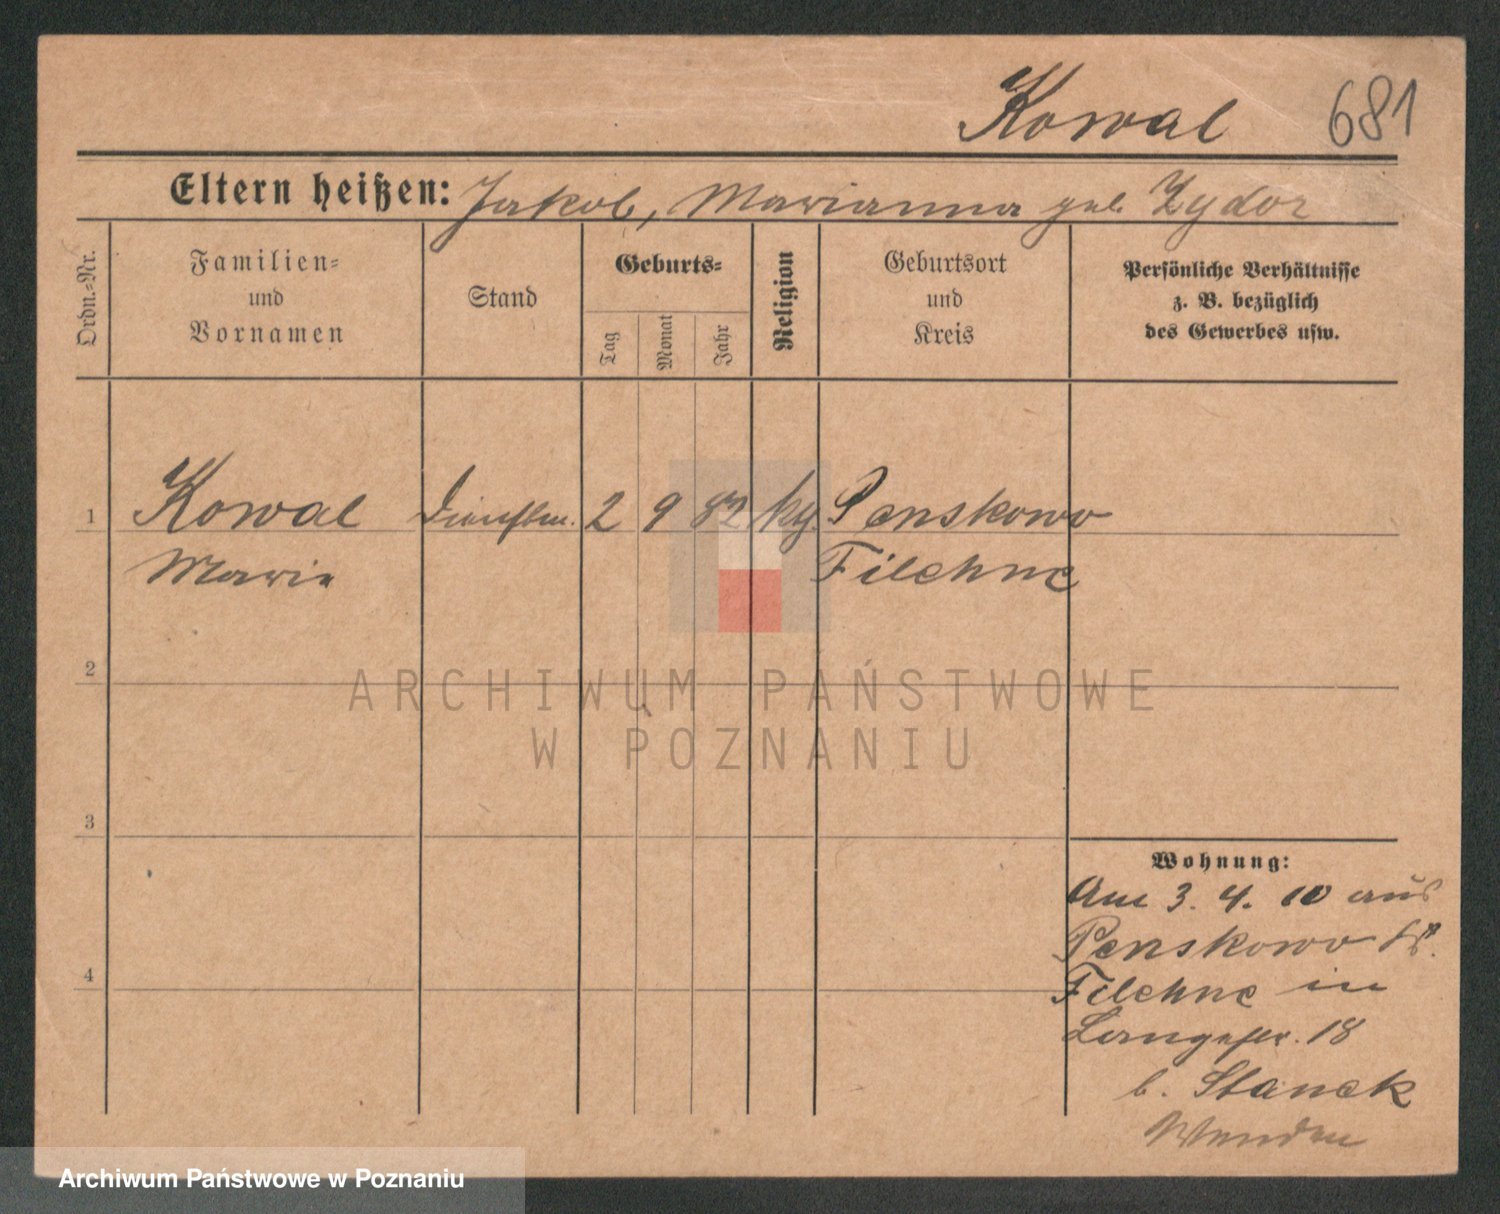 Kowal
681
Eltern heißen: Jakob, Marianna geb. Zydor
Ordn.-Nr.
Familien-
und
Vornamen
Stand
Geburts-
Tag
Monat
Jahr
Religion
Geburtsort
und
Kreis
Persönliche Verhältnisse
z. B. bezüglich
des Gewerbes usw.
1 Kowal 2 9 82 kg. Penskowo
Marie Filehne
2
3
4
Wohnung:
Am 3. 4. 10 aus
Penskowo
Filehne in
Langestr. 18
b. Stanek
ARCHIWUM PAŃSTWOWE
W POZNANIU
Archiwum Państwowe w Poznaniu